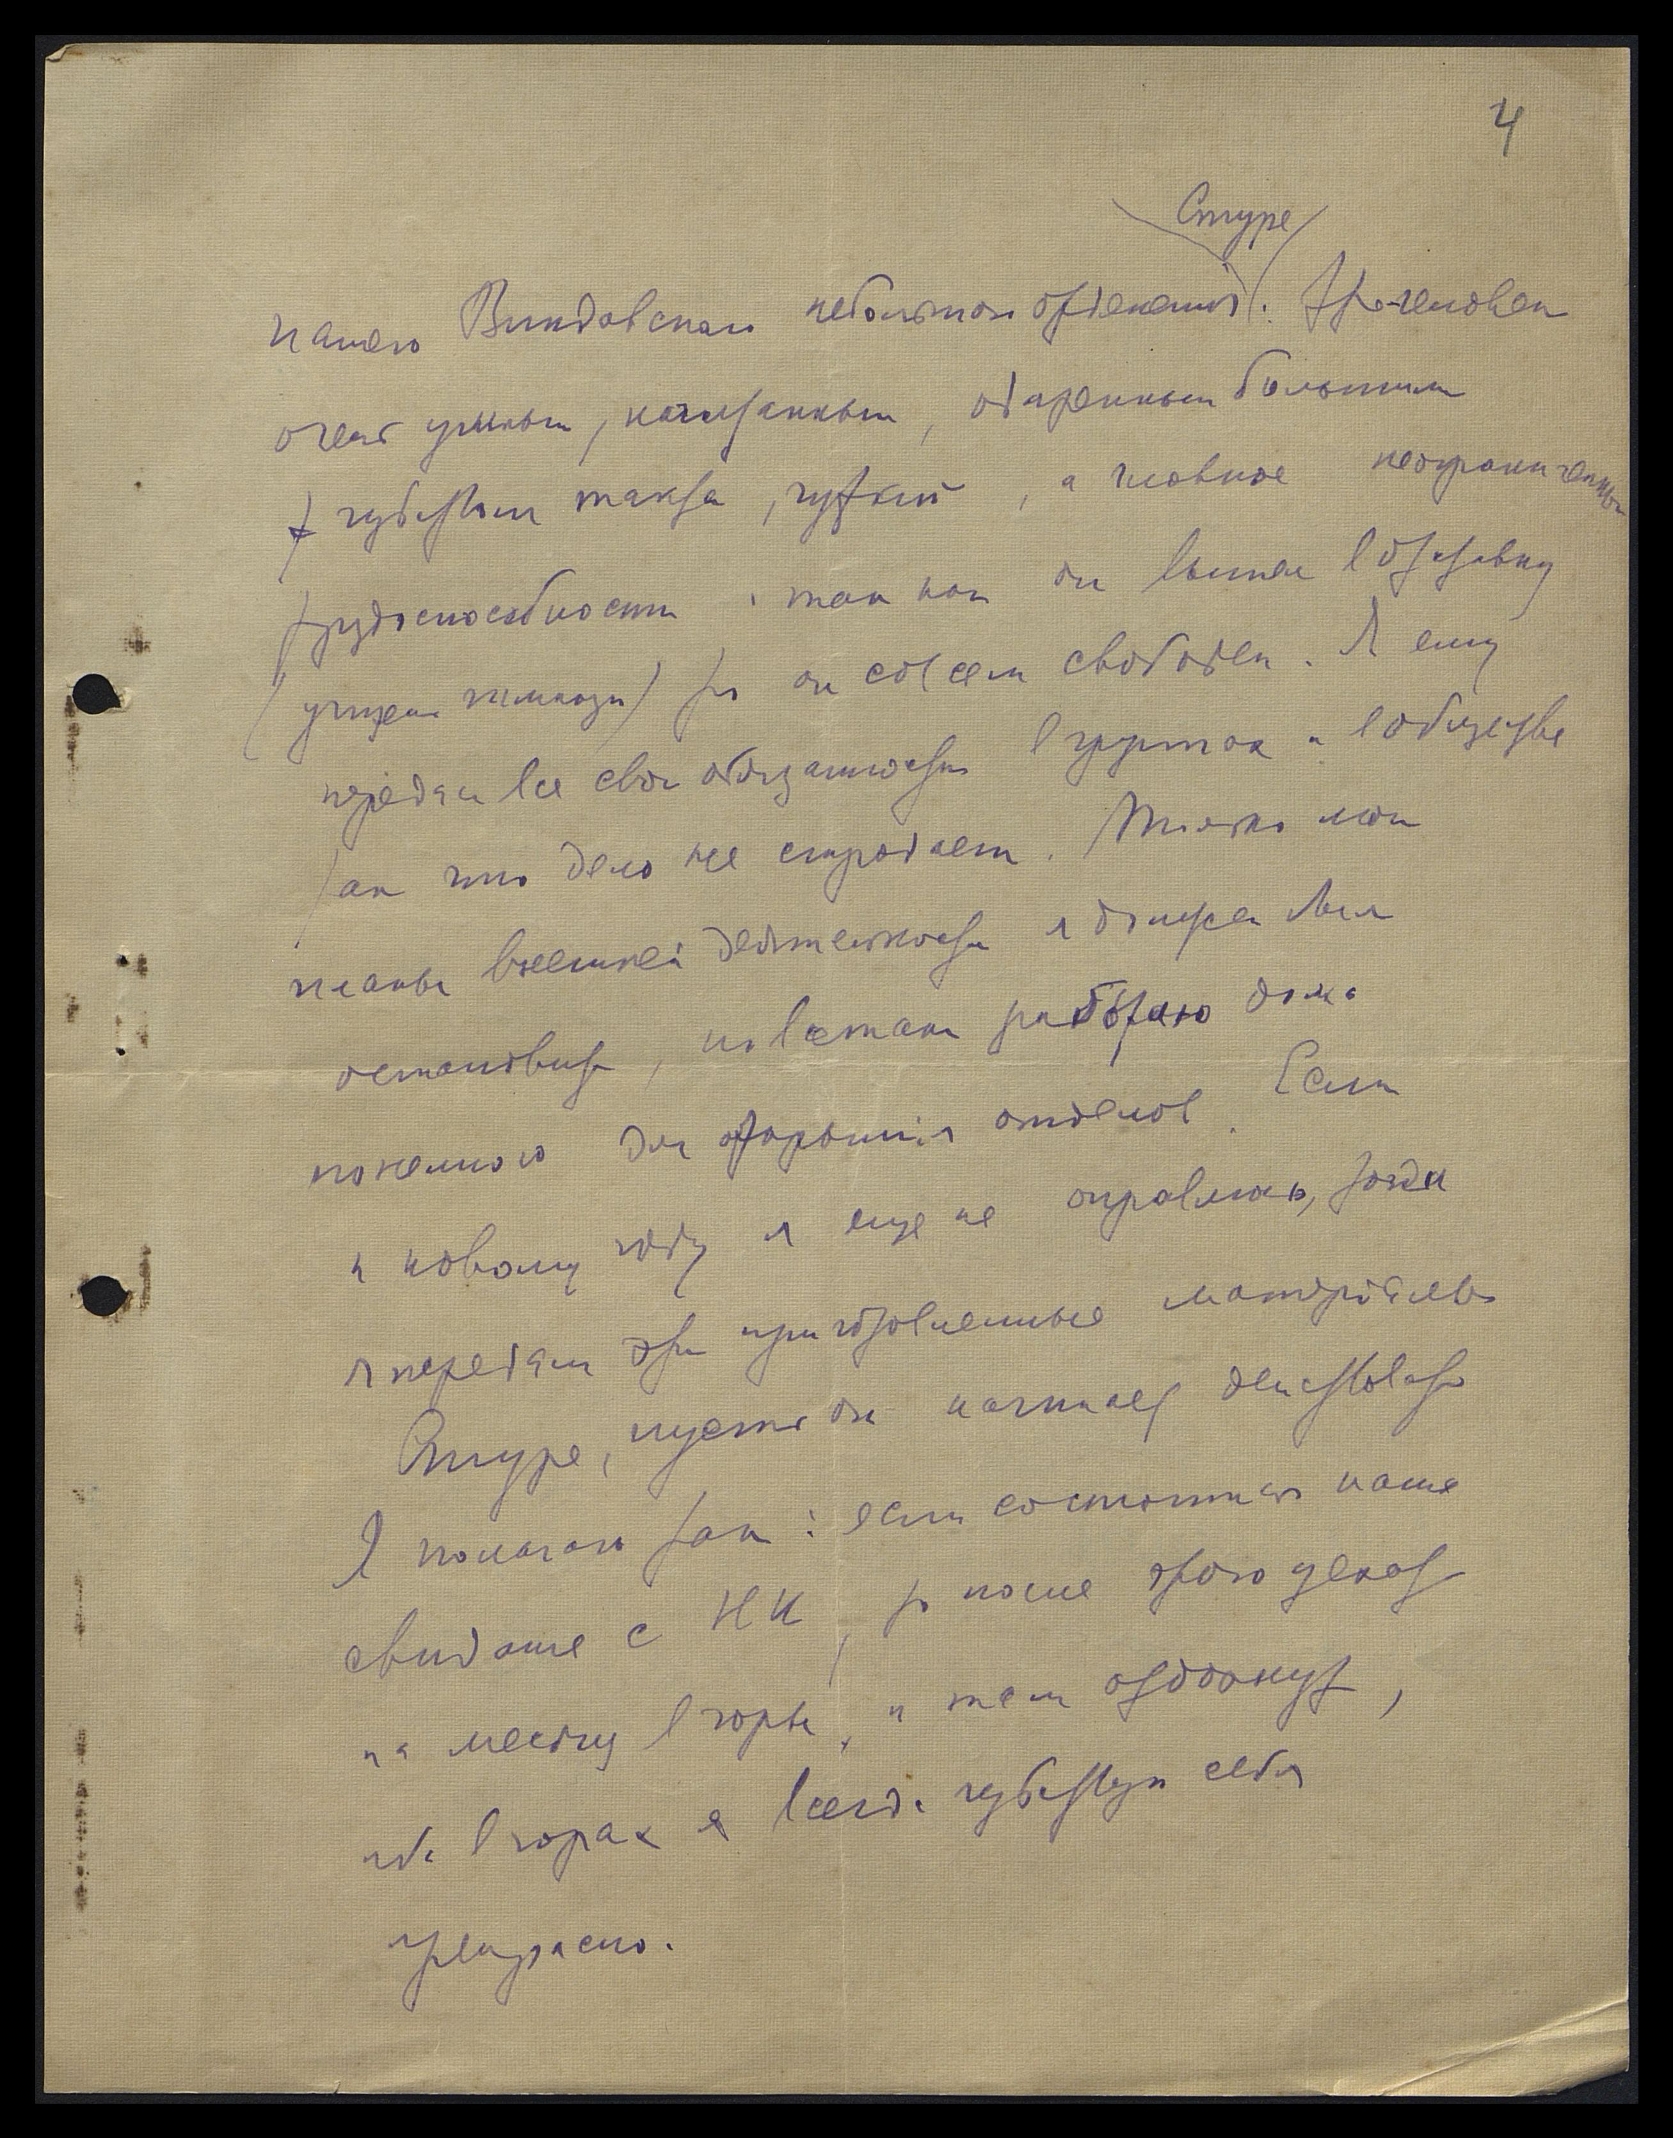 4
Стуре
нашего Виндавского небольшого отделения. Это человек
очень умный, начитанный, одаренный большим
чувством такта, чуткий, а главное неограниченной
трудоспособности, так как он вышел в отставку
(учител гимназии) то он совсем свободен. Я ему
передал все свои обязанности в группах и в обществе
так что дело не страдает. Только мои
планы внешней деятельности я должен был
остановить, но всетаки работаю дома
понемного для открытия отделов. Если
к новому году я еще не оправлюсь, тогда
я передам эти приготовленные матерiалы
Стуре, пусть он начинает действовать
Я полагаю так: если состоится наше
свидание с НК, то после этого уехать
на месяц в горы, и там отдохнуть,
ибо в горах я всегда чувствую себя
прекрасно.